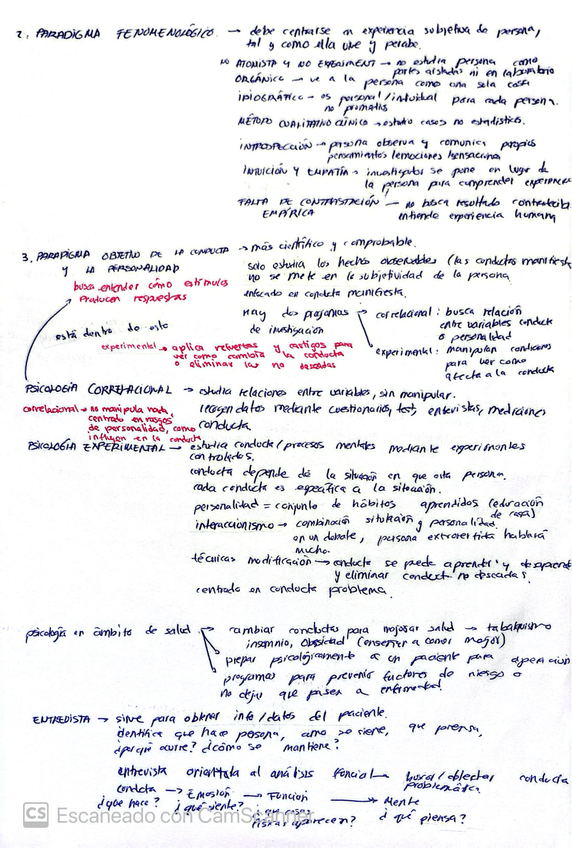 2. PARADIGMA FENOMENOLÓGICO → debe centrarse en experiencia subjetiva de persona,
tal y como ella vive y percibe.
NO ATOMISTA Y NO EXPERIMENT → no estudia persona como
partes aisladas ni en laboratorio
ORGÁNICA → ve a la persona como una sola cosa
IDIOGRÁFICA → es personal/individual para cada persona.
no
MÉTODO CUALITATIVO CLÍNICO → estudio casos no estadística.
INTROSPECCIÓN → persona observa y comunica propios
pensamientos/emociones/sensaciones
INTUICIÓN Y EMPATÍA → investigador se pone en lugar de
la persona para comprender experiencia
FALTA DE CONTRASTACIÓN → no busca resultado
EMPÍRICA entiende experiencia humana
3. PARADIGMA OBJETIVO DE LA CONDUCTA → más científico y comprobable.
Y LA PERSONALIDAD
solo estudia los hechos observables (las conductas manifiesta
busca entender cómo estímulos
producen respuestas
no se mete en la subjetividad de la persona.
enfocado en conducta manifiesta.
Hay dos programas
de investigación
correlacional: busca relación
entre variables conducta
o personalidad
experimental: manipulan condiciones
para ver como
afecta a la conducta
está dentro de esto
experimental → aplica refuerzos y castigos para
ver como cambiar la conducta
o eliminar las no deseadas
PSICOLOGÍA CORRELACIONAL → estudia relaciones entre variables, sin manipular.
correlacional → no manipula nada,
centrado en rasgos
de personalidad, como
influyen en la conducta
recogen datos mediante cuestionarios, test, entrevistas, mediciones
conducta
PSICOLOGÍA EXPERIMENTAL → estudia conducta/procesos mentales mediante experimentos
controlados.
conducta depende de la situación en que esta persona.
cada conducta es específica a la situación.
personalidad = conjunto de hábitos aprendidos (educación
de casa)
interaccionismo → combinación situación y personalidad.
en un debate, persona extrovertida hablará
mucho.
técnicas modificación → conducta se puede aprender y desaprend
y eliminar conduct no deseadas.
centrado en conducta problema.
psicología en ámbito de salud → cambiar conductas para mejorar salud → tabaquismo
insomnio, obesidad (enseñar a comer mejor)
prepar psicológicamente a un paciente para operación
programas para prevenir factores de riesgo o
no dejar que pasen a enfermedad.
ENTREVISTA → sirve para obtener info/datos del paciente.
identifica que hace persona, como se siente, que piensa,
¿porqué ocurre? ¿cómo se mantiene?
entrevista orientada al análisis funcional → buscar/detectar conducta
problemática.
conducta → Emoción → Función → Mente
¿qué hace? ¿qué siente? ¿que cosas aparecen? ¿qué piensa?
CS Escaneado con CamScanner